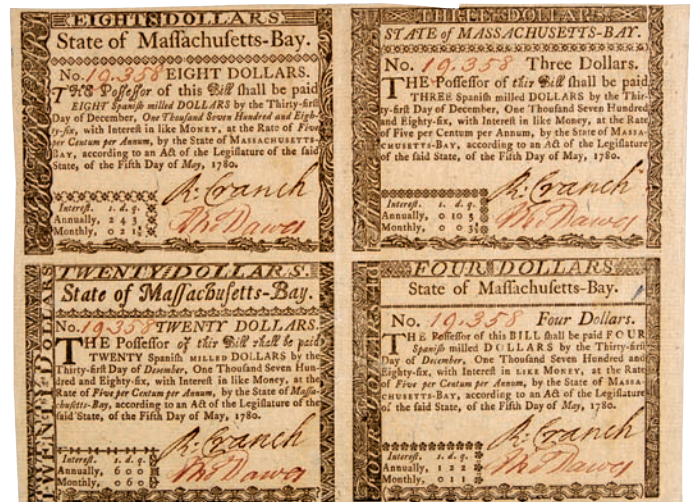 EIGHT DOLLARS.
State of Maſſachuſetts-Bay.
No. 19.358 EIGHT DOLLARS.
THE Poſſeſſor of this Bill ſhall be paid
EIGHT Spaniſh milled DOLLARS by the Thirty-firſt
Day of December, One Thouſand Seven Hundred and Eigh-
ty-ſix, with Intereſt in like MONEY, at the Rate of Five
per Centum per Annum, by the State of MASSACHUSETTS-
BAY, according to an Act of the Legiſlature of the ſaid
State, of the Fifth Day of May, 1780.
R: Cranch
Intereſt. s. d. q.
Annually, 2 4 3
Monthly, 0 2 1
Tho Dawes
THREE DOLLARS.
STATE of MASSACHUSETTS-BAY.
No. 19.358 Three Dollars.
THE Poſſeſſor of this Bill ſhall be paid
THREE Spaniſh milled DOLLARS by the Thir-
ty-firſt Day of December, One Thouſand Seven Hundred
and Eighty-ſix, with Intereſt in like Money, at the Rate
of Five per Centum per Annum, by the State of MASSA-
CHUSETTS-BAY, according to an Act of the Legiſlature
of the ſaid State, of the Fifth Day of May, 1780.
R: Cranch
Intereſt. s. d. q.
Annually, 0 10 3
Monthly, 0 0 3
Tho Dawes
TWENTY DOLLARS.
State of Maſſachuſetts-Bay.
No. 19.358 TWENTY DOLLARS.
THE Poſſeſſor of this Bill ſhall be paid
TWENTY Spaniſh MILLED DOLLARS by the
Thirty-firſt Day of December, One Thouſand Seven Hun-
dred and Eighty-ſix, with Intereſt in like Money, at the
Rate of Five per Centum per Annum, by the State of Maſſa-
chuſetts-Bay, according to an Act of the Legiſlature of the
ſaid State, of the Fifth Day of May, 1780.
R: Cranch
Intereſt. s. d. q.
Annually, 6 0 0
Monthly, 0 6 0
Tho Dawes
TWENTY DOLLARS
FOUR DOLLARS
State of Maſſachuſetts-Bay.
No. 19.358 Four Dollars.
THE Poſſeſſor of this BILL ſhall be paid FOUR
Spaniſh milled DOLLARS by the Thirty-firſt
Day of December, One Thouſand Seven Hundred and
Eighty-ſix, with Intereſt in LIKE MONEY, at the Rate
of Five per Centum per Annum, by the State of MASSA-
CHUSETTS-BAY, according to an Act of the Legiſlature
of the ſaid State, of the Fifth Day of May, 1780.
R: Cranch
Intereſt. s. d. q.
Annually, 1 2 2
Monthly, 0 1 1
Tho Dawes